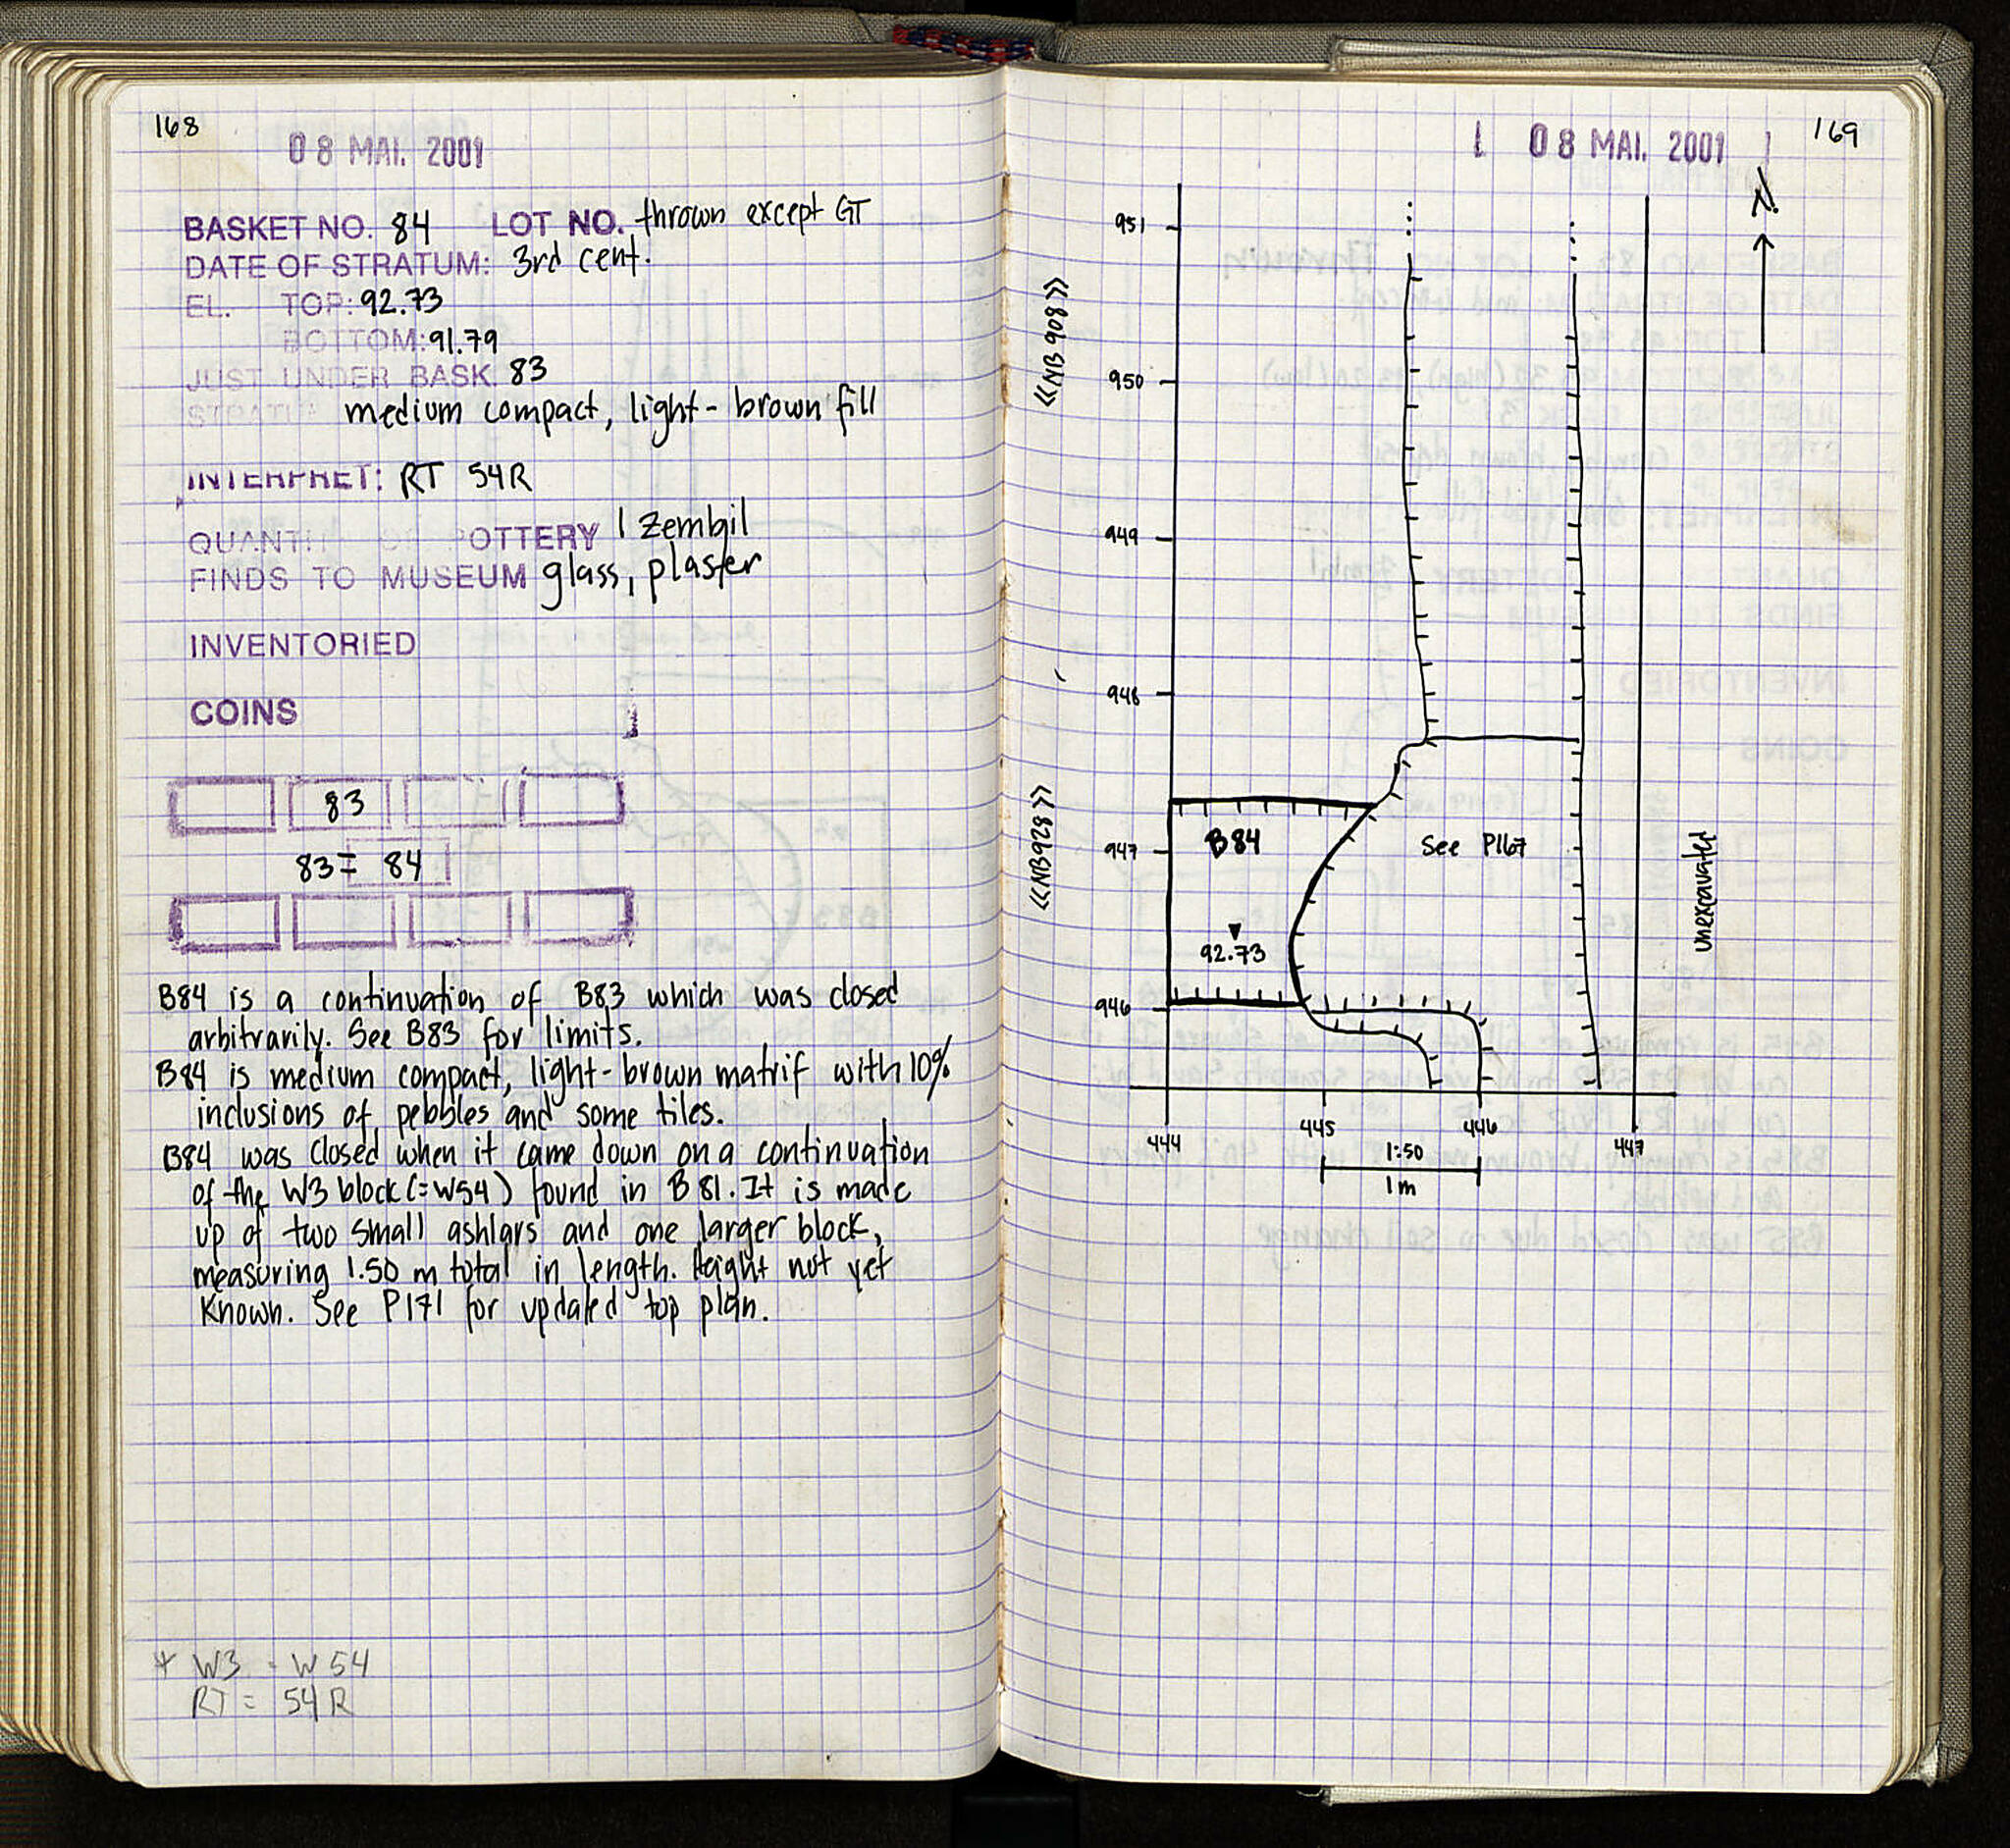 168
08 MAI. 2001
BASKET NO. 84 LOT NO. thrown except GT
DATE OF STRATUM: 3rd cent.
EL. TOP: 92.73
BOTTOM: 91.79
JUST UNDER BASK. 83
medium compact, light-brown fill
INTERPRET: RT 54R
QUANTI OF POTTERY 1 Zembil
FINDS TO MUSEUM glass, plaster
INVENTORIED
COINS
83
83= 84
B84 is a continuation of B83 which was closed
arbitrarily. See B83 for limits.
B84 is medium compact, light-brown matrif with 10%
inclusions of pebbles and some tiles.
B84 was closed when it came down on a continuation
of the W3 block (=W54) found in B81. It is made
up of two small ashlars and one larger block,
measuring 1.50 m total in length. Height not yet
known. See P171 for updated top plan.
* W3 = W54
RT = 54R
08 MAI. 2001
169
N.
951
<<NB 908>>
950
949
948
<<NB928>>
947
B84
See P167
unexcavated
92.73
946
444
445
446
447
1:50
1m